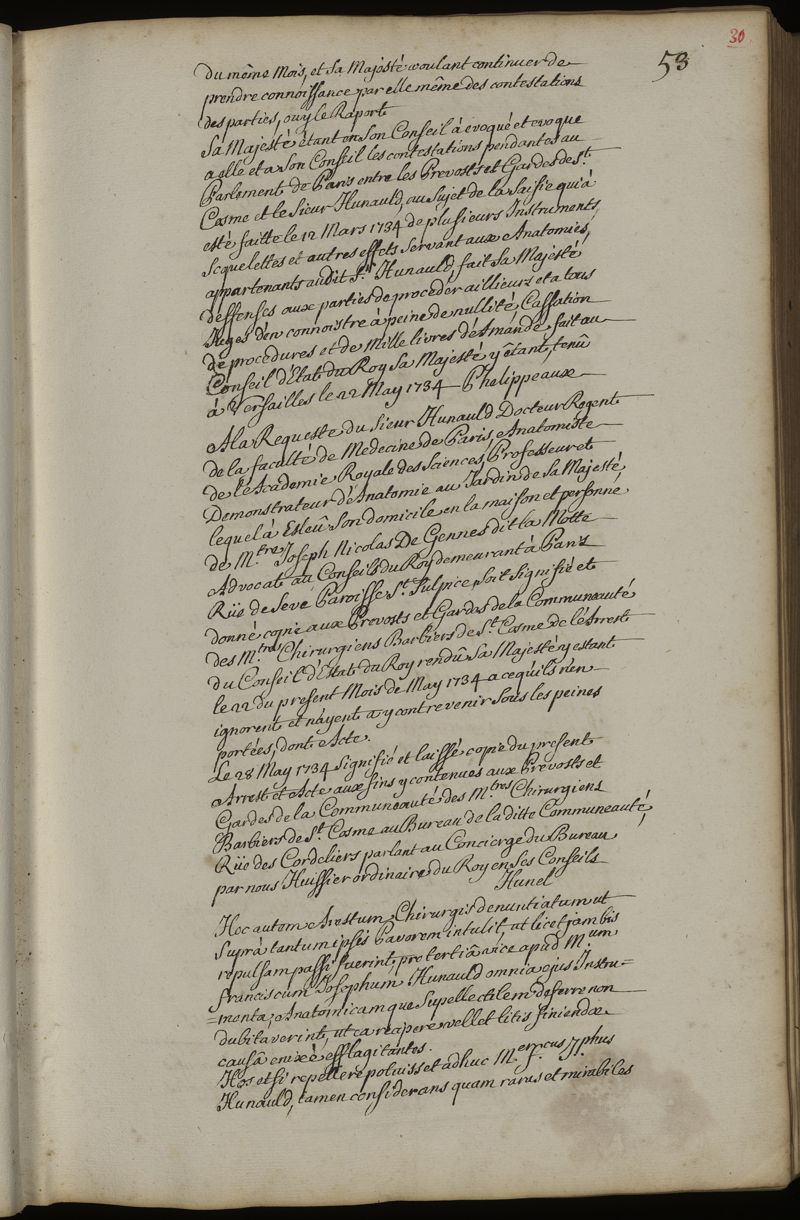 30
53
Du même Mois, et Sa Majesté voulant continuer de
prendre connoissance par elle même des contestations
des parties, ouy le Raport
Sa Majesté étant en Son Conseil à evoqué et evoque
a elle et a Son Conseil les contestations pendantes au
Parlement de Paris entre les Prevosts et Gardes de St.
Cosme et le Sieur Hunauld, au Sujet de la Saisie qui à
esté faitte le 12 Mars 1734 de plusieurs Instruments,
Squelettes et autres effets Servant aux Anatomies,
appartenants audit Sr. Hunauld, fait Sa Majesté
deffenses aux parties de proceder aillieurs et a tous
Juges d'en connoistre à peine de nullité, Cassation
de procedures et de Mille livres d'Amande, fait au
Conseil d'Etat du Roy Sa Majesté y étant, tenû
à Versailles le 22 May 1734 Phelippeaux
A la Requeste du Sieur Hunauld Docteur Regent
de la faculté de Medecine de Paris, Anatomiste
de l'Academie Royale des Sciences, Professeur et
Demonstrateur d'Anatomie au Jardin de Sa Majesté,
lequel à Esleû Son domicile en la maison et personne
de M.tre Joseph Nicolas De Gennes dit la Motte
Advocat au Conseils du Roy demeurant à Paris
Rüe de Seve Paroisse St. Sulpice Soit Signifié et
donné copie aux Prevosts et Gardes de la Communauté
des M.tres Chirurgiens Barbiers de St. Cosme de l'Arrest
du Conseil d'Etat du Roy rendû Sa Majesté y estant
le 22 du present Mois de May 1734 a ce qu'ils n'en
ignorent et n'ayent a y contrevenir Sous les peines
portées, dont Acte.
Le 28 May 1734 Signifié et laissé copie du present
Arrest et Acte aux fins y contenues aux Prevosts et
Gardes de la Communauté des M.tres Chirurgiens
Barbiers de St. Cosme au Bureau de la ditte Communeauté,
Rüe des Cordeliers parlant au Concierge du Bureau
par nous Huissier ordinaire du Roy en Ses Conseils
Hunel
Hoc autem Arestum Chirurgis denuntiatum ut
Suprà tantum ipsis Pavorem intulit, ut licet jam bis
repulsam passi fuerint, pro tertiâ vice apud M.um
franciscum Josephum Hunauld omnia ejus Instru=
=menta, Anatomicamque Supellectilem deferre non
dubitaverint, ut ea recipere vellet litis finiendæ
causâ enixè efflagitantes.
Hos etsi repellere potuisset adhuc M.er f.cus J.phus
Hunauld, tamen considerans quam rarus et mirabiles